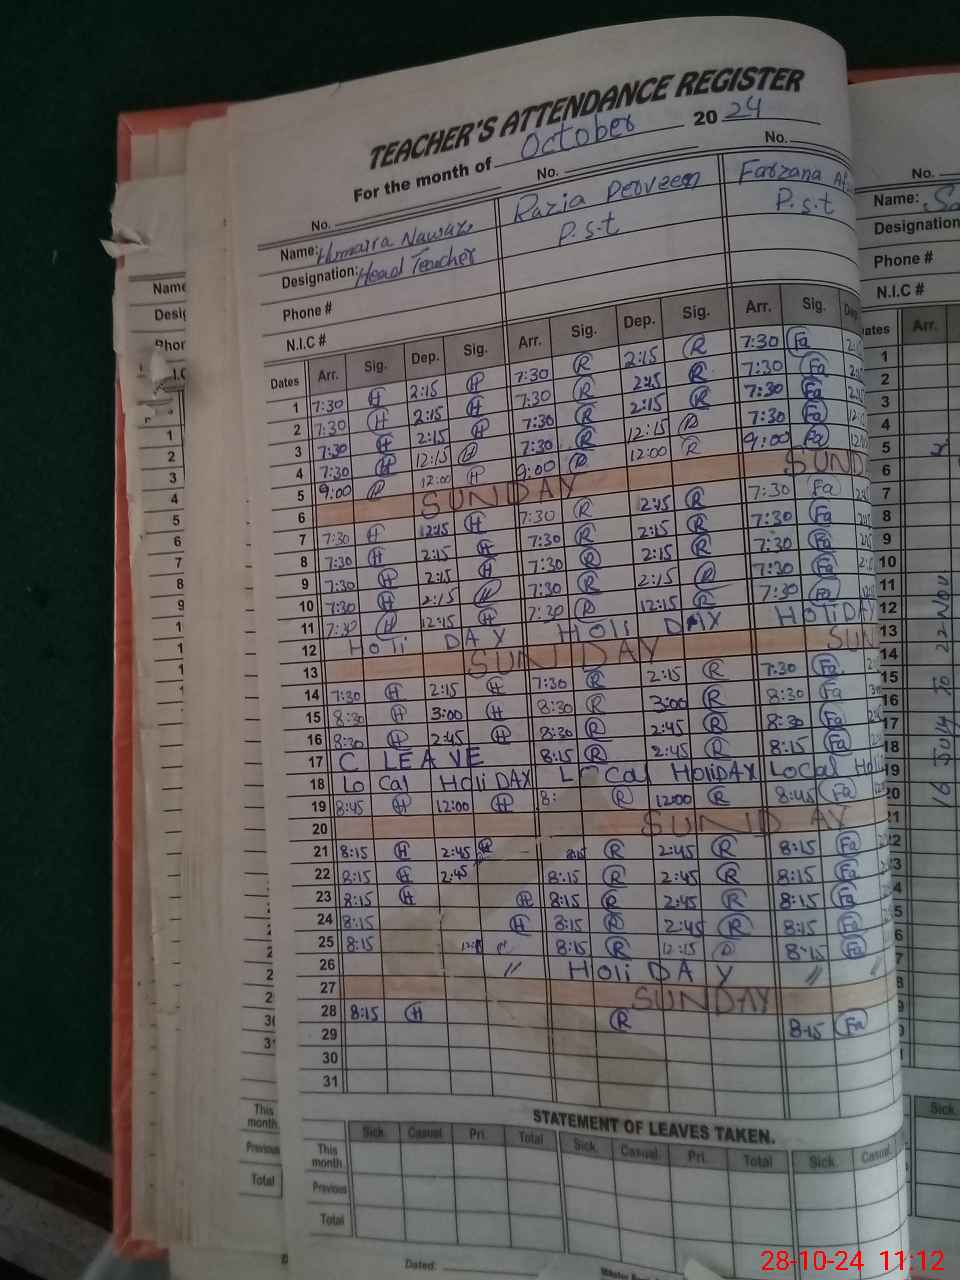 TEACHER'S ATTENDANCE REGISTER
For the month of October 2024
No. No. No.
Name: Humaira Nawaz Razia Perveen Farzana
Designation: Head Teacher P.s.t P.s.t
Phone #
N.I.C #
Dates Arr. Sig. Dep. Sig. Arr. Sig. Dep. Sig. Arr. Sig. Dep.
1 7:30 H 2:15 H 7:30 R 2:15 R 7:30 Fa
2 7:30 H 2:15 H 7:30 R 2:15 R 7:30 Fa
3 7:30 H 2:15 H 7:30 R 2:15 R 7:30 Fa
4 7:30 H 12:15 H 7:30 R 12:15 R 7:30 Fa
5 9:00 12:00 H 9:00 R 12:00 R 9:00 Fa
6 SUNDAY SUND
7 7:30 H 12:15 H 7:30 R 2:15 R 7:30 Fa
8 7:30 H 2:15 H 7:30 R 2:15 R 7:30 Fa
9 7:30 H 2:15 H 7:30 R 2:15 R 7:30 Fa
10 7:30 H 2:15 H 7:30 R 2:15 R 7:30 Fa
11 7:30 H 12:15 H 7:30 R 12:15 R 7:30 Fa
12 HoliDAY HoliDAY HOLIDAY
13 SUNDAY SUN
14 7:30 H 2:15 H 7:30 R 2:15 R 7:30 Fa
15 8:30 H 3:00 H 8:30 R 3:00 R 8:30 Fa
16 8:30 H 2:45 H 8:30 R 2:45 R 8:30 Fa
17 C LEAVE 8:15 R 2:45 R 8:15 Fa
18 Local HoliDAY Local HoliDAY Local Holi
19 8:45 H 12:00 H 8: R 12:00 R 8:45 Fa
20 SUNDAY
21 8:15 H 2:45 H 8:15 R 2:45 R 8:15 Fa
22 8:15 H 2:45 8:15 R 2:45 R 8:15 Fa
23 8:15 H H 8:15 R 2:45 R 8:15 Fa
24 8:15 H 8:15 R 2:45 R 8:15 Fa
25 8:15 8:15 R 12:15 R 8:15 Fa
26 // HoliDAY // //
27 SUNDAY
28 8:15 H R 8:15 Fa
29
30
31
STATEMENT OF LEAVES TAKEN.
Sick. Casual. Pri. Total Sick. Casual. Pri. Total Sick. Casual.
This month
Previous
Total
Dated:
No.
Name:
Designation
Phone #
N.I.C #
Arr.
1
2
3
4
5
6
7
8
9
10
11
12
13
14
15
16
17
18
16 July To 22-Nov
Sick.
Name
1
2
3
4
5
6
7
8
9
This month
Previous
Total
28-10-24 11:12